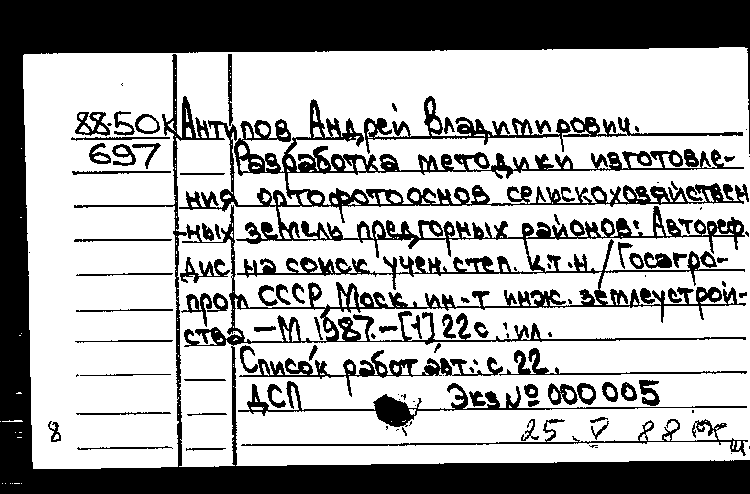 88-50К Антипов, Андрей Владимирович.
697 Разработка методики изготовле-
ния ортофотооснов сельскохозяйствен
-ных земель предгорных районов: Автореф.
дис. на соиск. учен. степ. к.т.н. / Госагро-
пром СССР, Моск. ин-т инж. землеустрой-
ства. - М. 1987. - [1] 22 с. : ил.
Список работ авт.: с. 22.
ДСП Экз № 000005
8 25 V 88
ш.